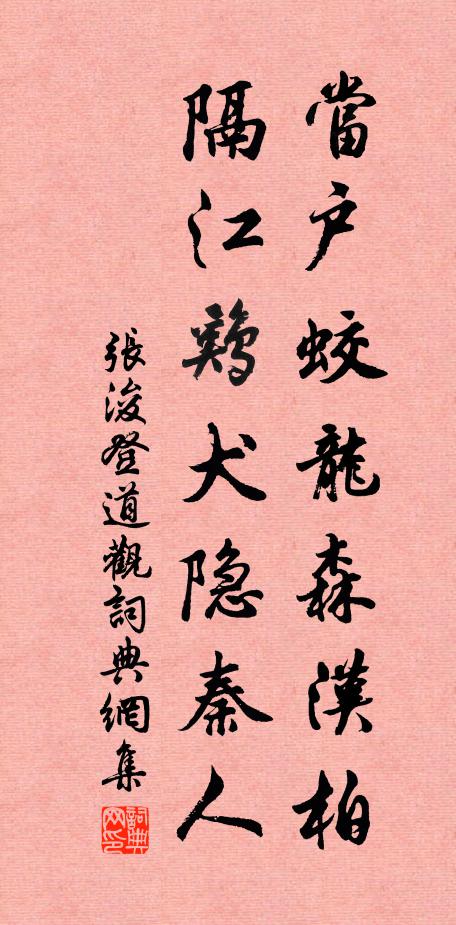 當户蛟龍森漢柏
隔江鷄犬隐秦人
張浚登道觀詞典網集
詞典网印